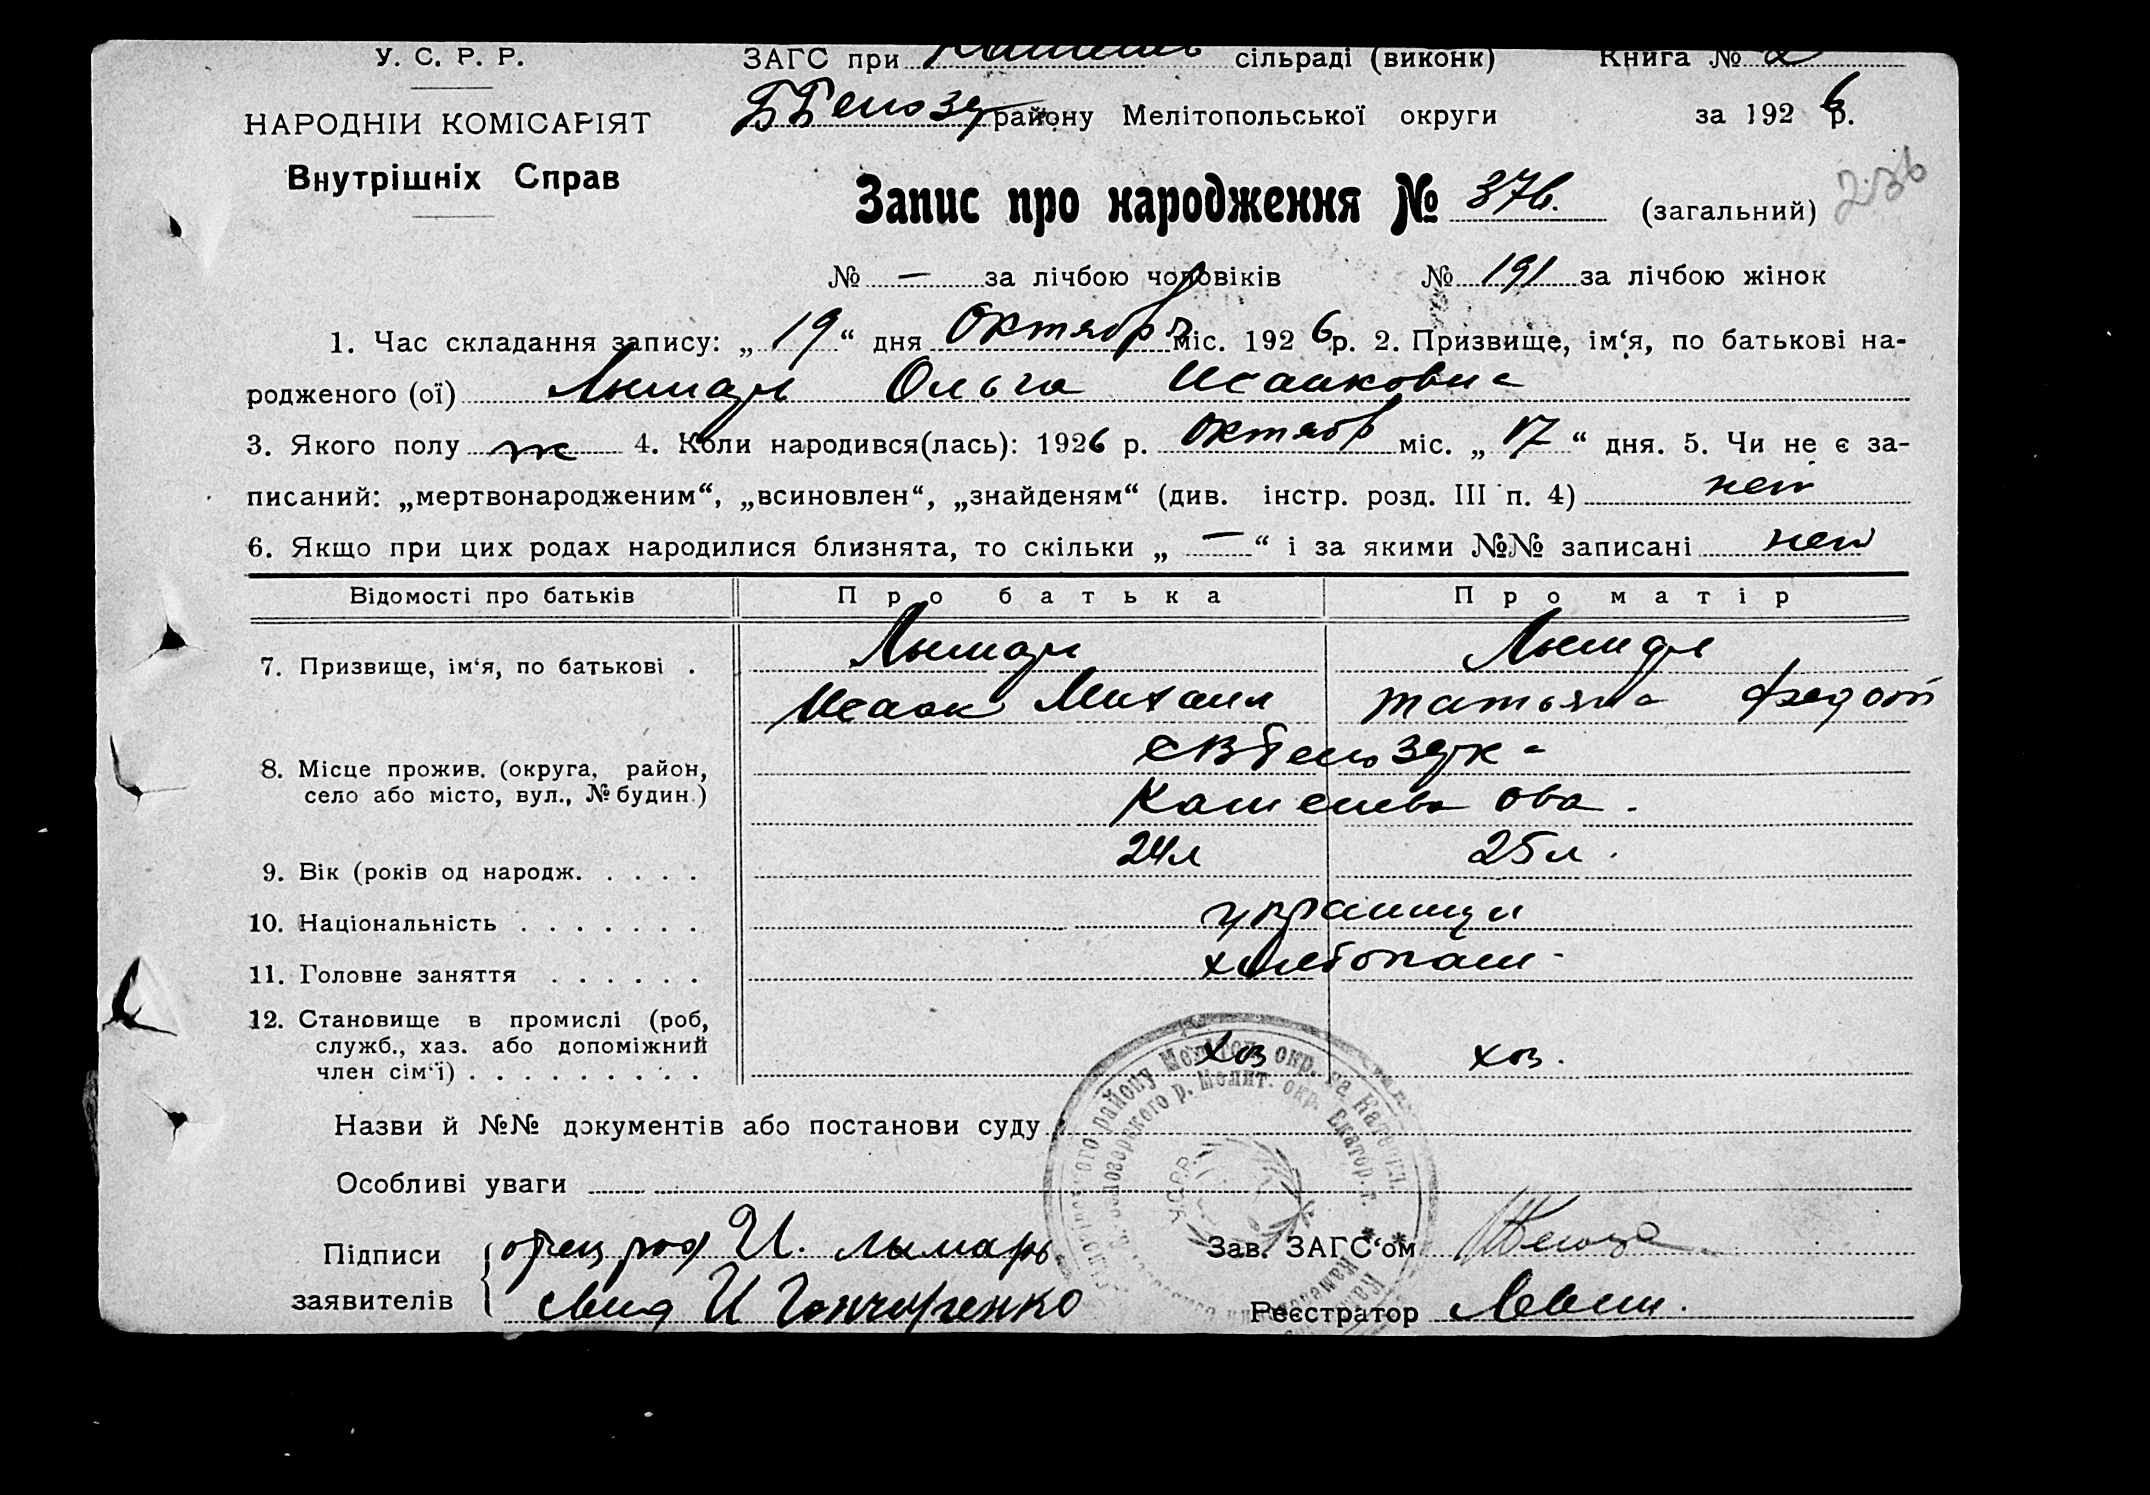 У. С. Р. Р.
ЗАГС при сільраді (виконк) Книга № 2
НАРОДНІИ КОМІСАРІЯТ
району Мелітопольської округи за 1926 р.
Внутрішніх Справ
Запис про народження № 376. (загальний) 236
№ — за лічбою чоловіків № 191 за лічбою жінок
1. Час складання запису: „ 19 “ дня Октября міс. 1926 р. 2. Призвище, ім‘я, по батькові на-
родженого (ої) Лымарь Ольга Исааковна
3. Якого полу ж 4. Коли народився(лась): 1926 р. Октябр міс. „ 17 “ дня. 5. Чи не є за-
писаний: „мертвонародженим“, „всиновлен“, „знайденям“ (див. інстр. розд. III п. 4) нет
6. Якщо при цих родах народилися близнята, то скільки „ — “ і за якими №№ записані нет
Відомості про батьків Про батька Про матір
7. Призвище, ім‘я, по батькові . Лымарь Лымарь
Исаак Михаил Татьяна Федот
8. Місце прожив. (округа, район,
село або місто, вул., № будин.)
9. Вік (років од народж. . . . . 24 л 25 л.
10. Національність . . . . . . . украинцы
11. Головне заняття . . . . . . хлебопаш-
12. Становище в промислі (роб,
служб., хаз. або допоміжний
член сім‘ї) . . . . . . . . . хоз хоз.
Назви й №№ документів або постанови суду
Особливі уваги
У.С.Р.Р.
Підписи И. Лымарь Зав. ЗАГС‘ом
заявителів И Гончаренко Реєстратор